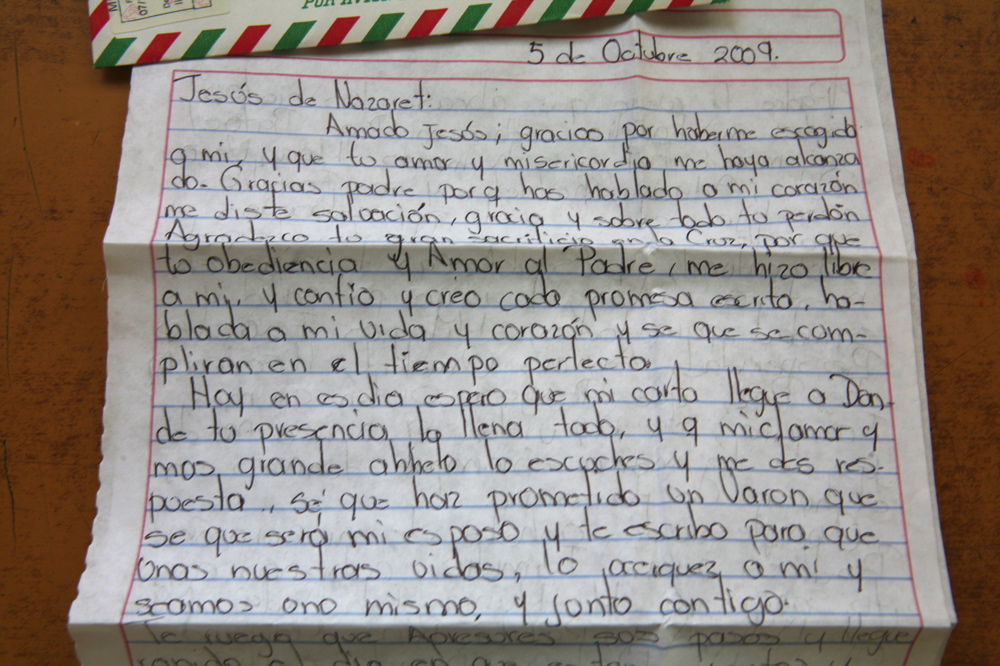 POR AVI
5 de Octubre 2009.
Jesús de Nazaret:
Amado Jesús; gracias por haberme escogido
a mi, y que tu amor y misericordia me haya alcanza
do. Gracias padre porq has hablado a mi corazón
me diste salvación, gracia y sobre todo tu perdón
Agradezco tu gran sacrificio en la Cruz, por que
tu obediencia y Amor al Padre, me hizo libre
a mi, y confio y creo cada promesa escrita, ha-
blada a mi vida y corazón y se que se com-
pliran en el tiempo perfecto,
Hay en es dia espero que mi carta llegue a Don-
de tu presencia lo llena todo, y q mi clamor y
mas grande ahhelo lo escuches y me des res-
puesta., sé que haz prometido un Varon que
se que será mi esposo y te escribo para que
Unas nuestras vidas, lo acerques a mi y
seamos uno mismo, y junto contigo.
Te ruego que Apresures sus pasos y llegue
el dia en que